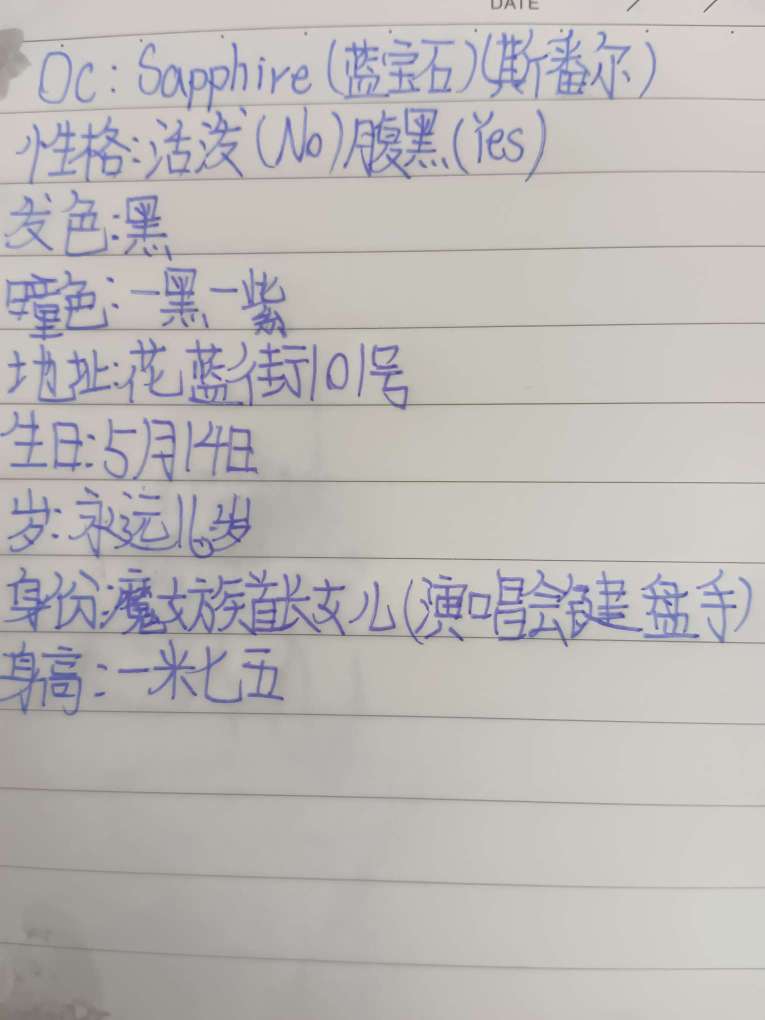 DATE / /
Oc: Sapphire (蓝宝石)(斯番尔)
性格:活泼(No)腹黑(Yes)
发色:黑
瞳色:一黑一紫
地址:花蓝街101号
生日:5月14日
岁:永远16岁
身份:魔女族首长女儿(演唱会键盘手)
身高:一米七五